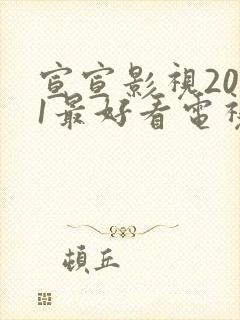 宣宣影視20
1最好看電視
頓丘